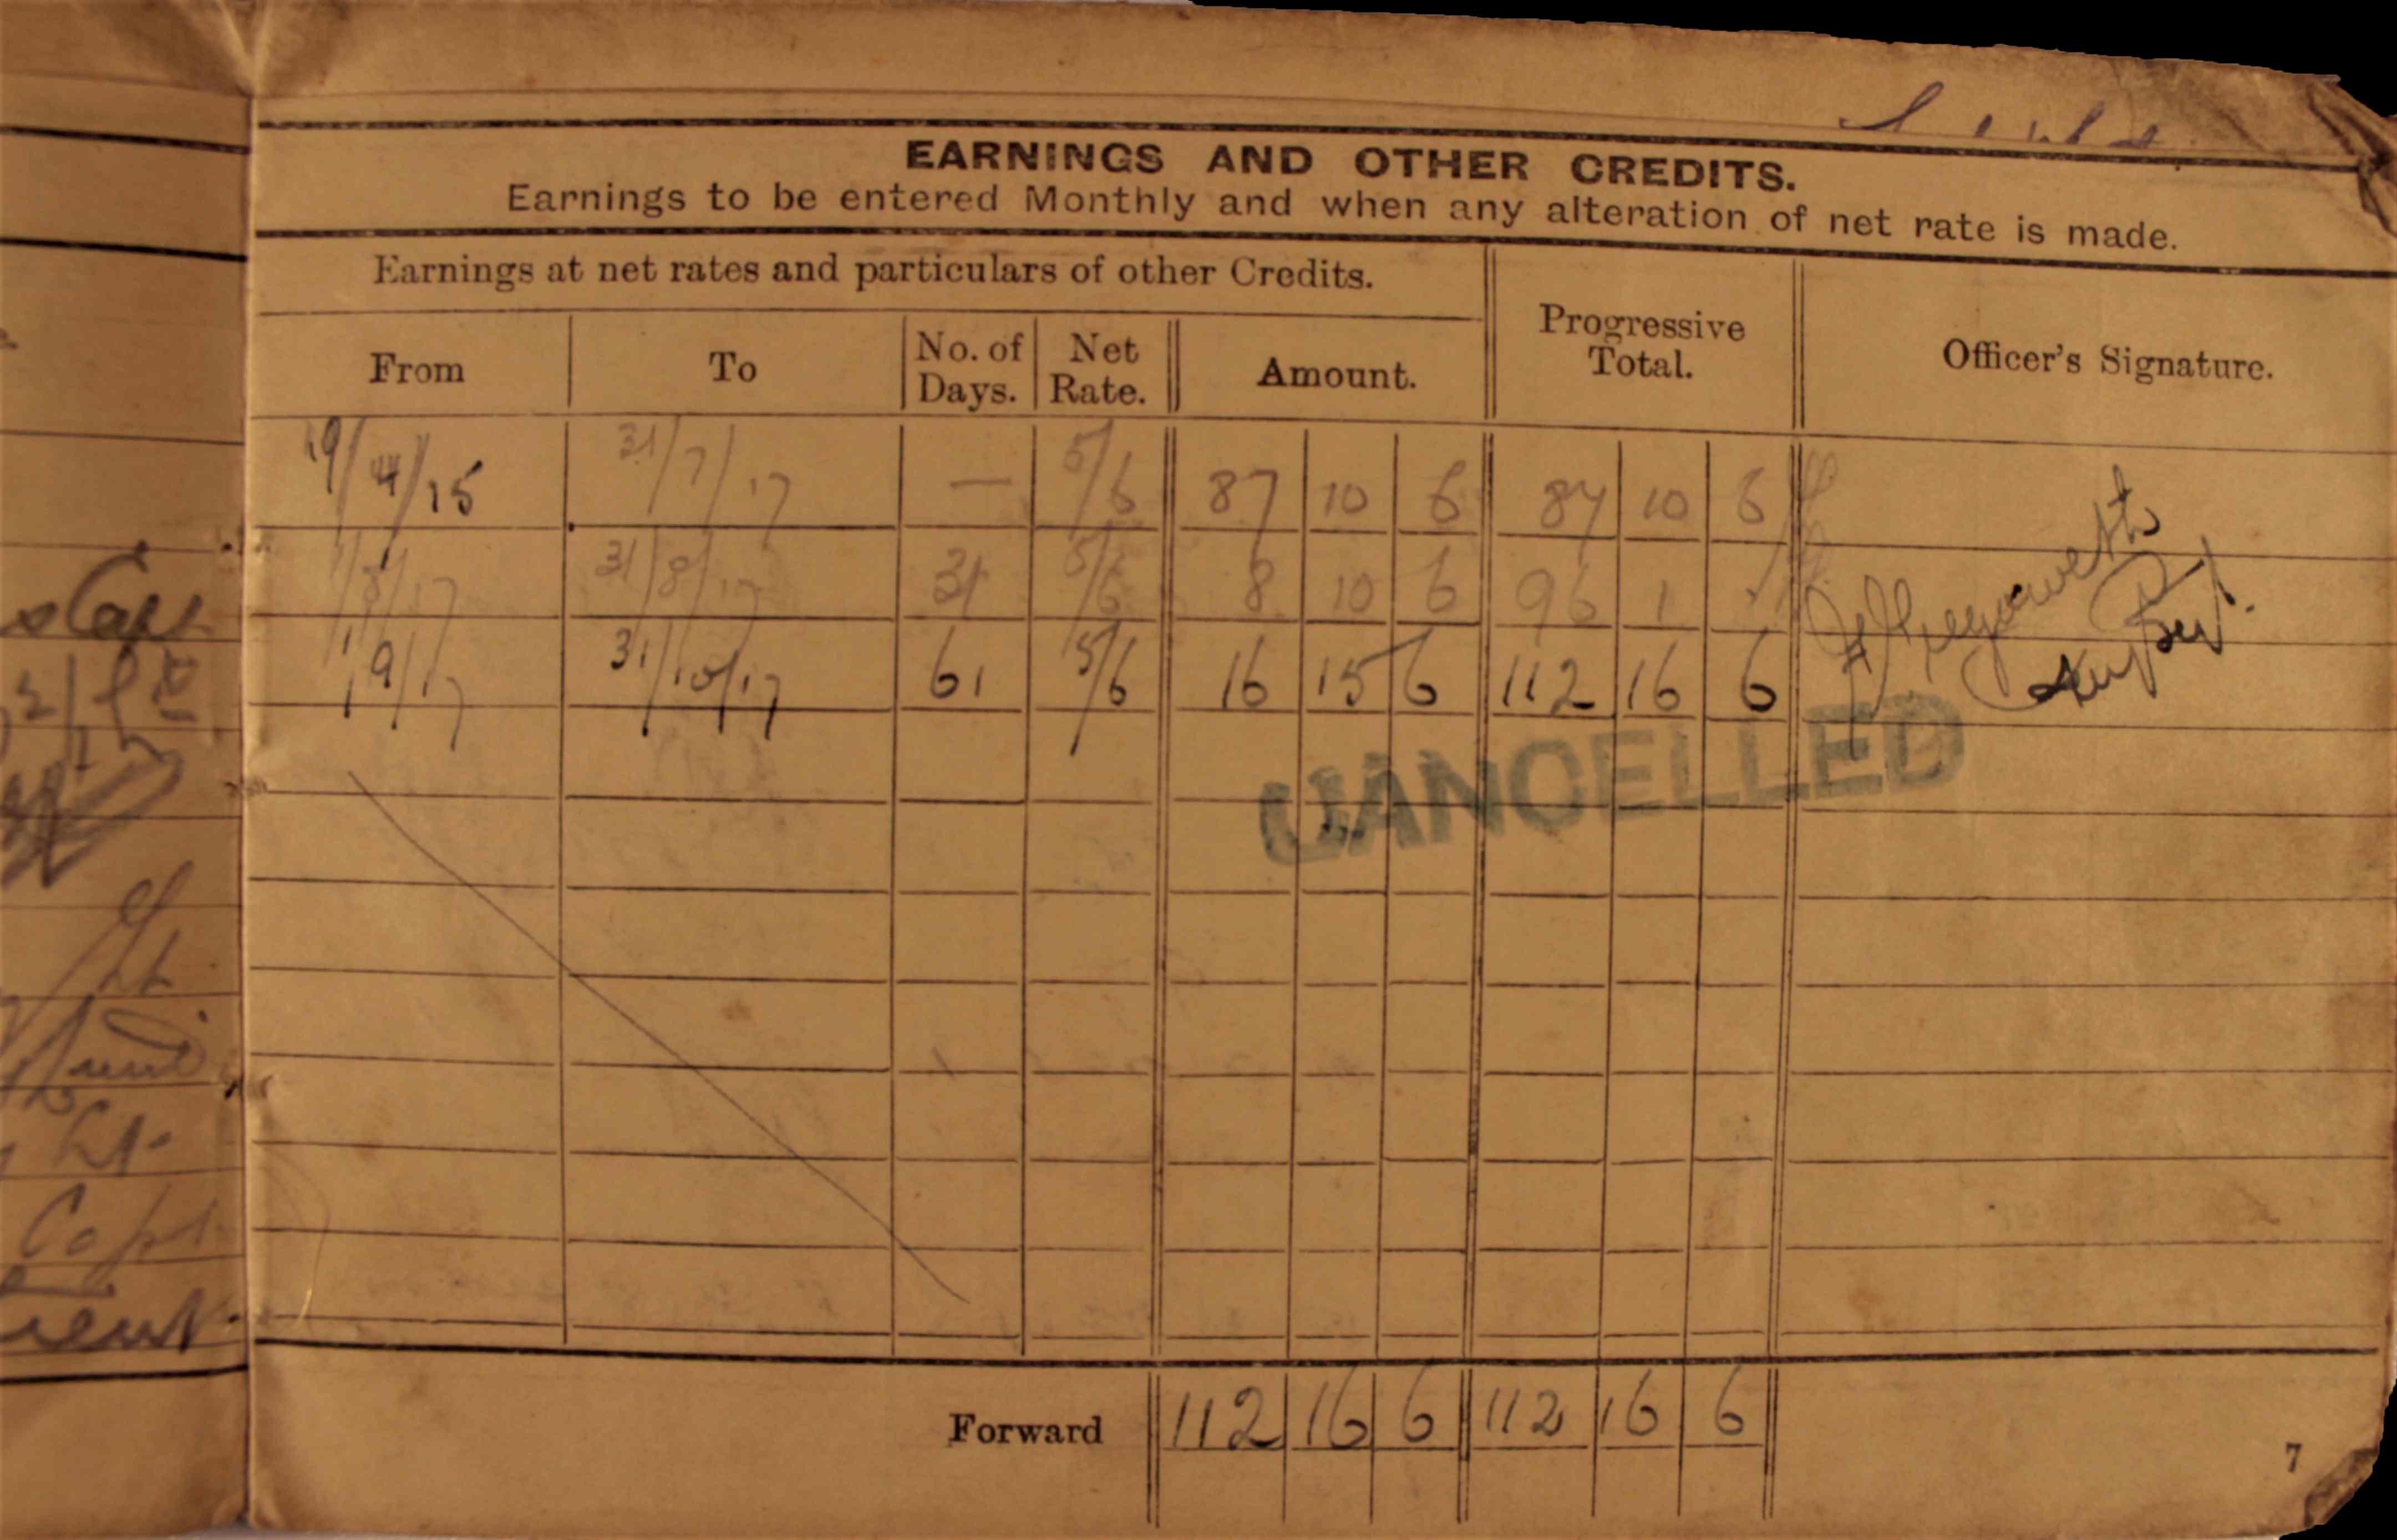 EARNINGS AND OTHER CREDITS.
Earnings to be entered Monthly and when any alteration of net rate is made.
Earnings at net rates and particulars of other Credits.
Progressive Total.
Officer's Signature.
From To No. of Days. Net Rate. Amount.
19/4/15 31/7/17 — 5/6 87 10 6 87 10 6
1/8/17 31/8/17 31 5/6 8 10 6 96 1
1/9/17 31/10/17 61 5/6 16 15 6 112 16 6
CANCELLED
Forward 112 16 6 112 16 6
7
Lt
Lt.
Capt
Lieut